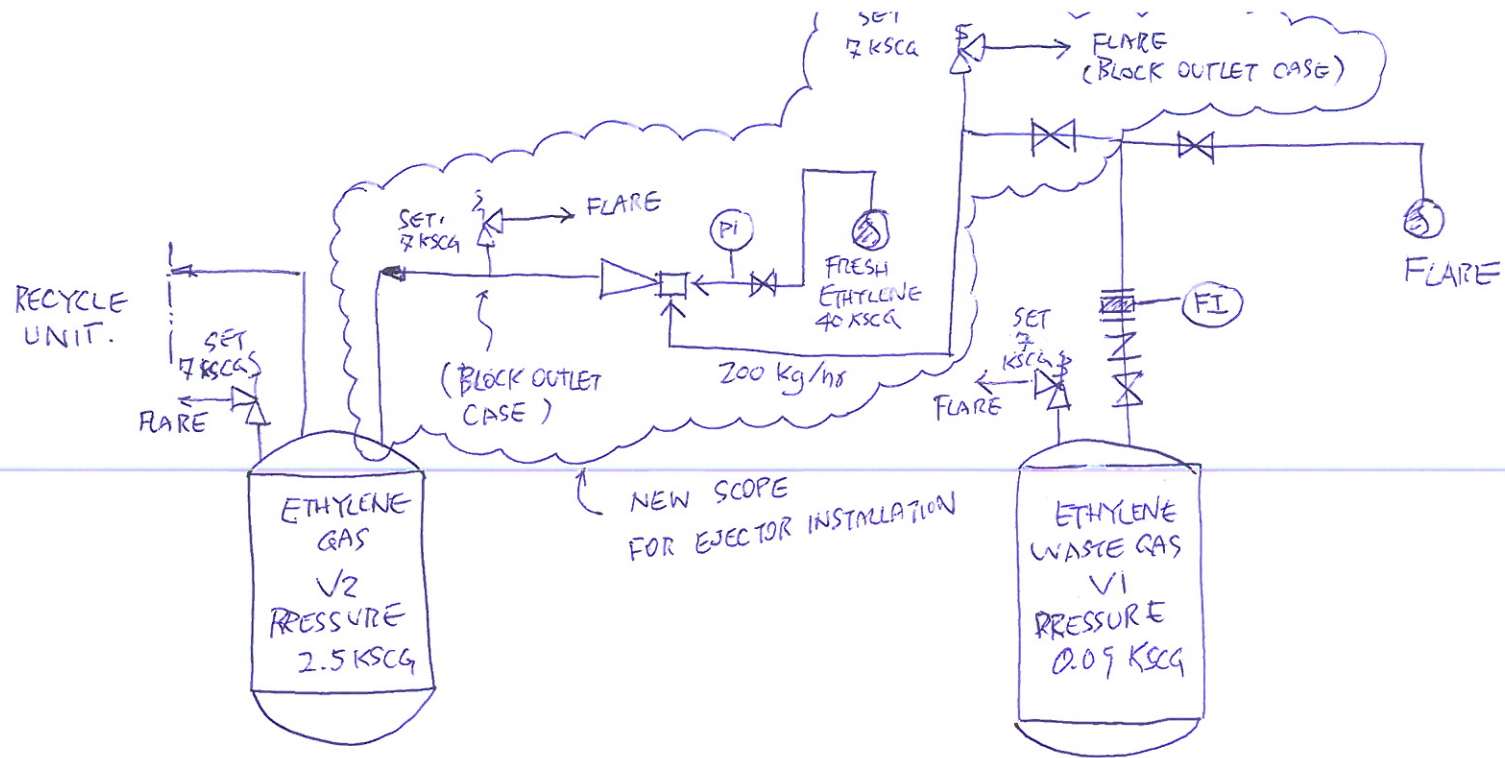 SET
7 KSCG
FLARE
(BLOCK OUTLET CASE)
SET.
7 KSCG
FLARE
Pi
FRESH
ETHYLENE
40 KSCG
FLARE
RECYCLE
UNIT.
SET
7 KSCG
FLARE
(BLOCK OUTLET
CASE)
200 kg/hr
SET
7
KSCG
FLARE
FI
NEW SCOPE
FOR EJECTOR INSTALLATION
ETHYLENE
GAS
V2
PRESSURE
2.5 KSCG
ETHYLENE
WASTE GAS
V1
PRESSURE
KSCG